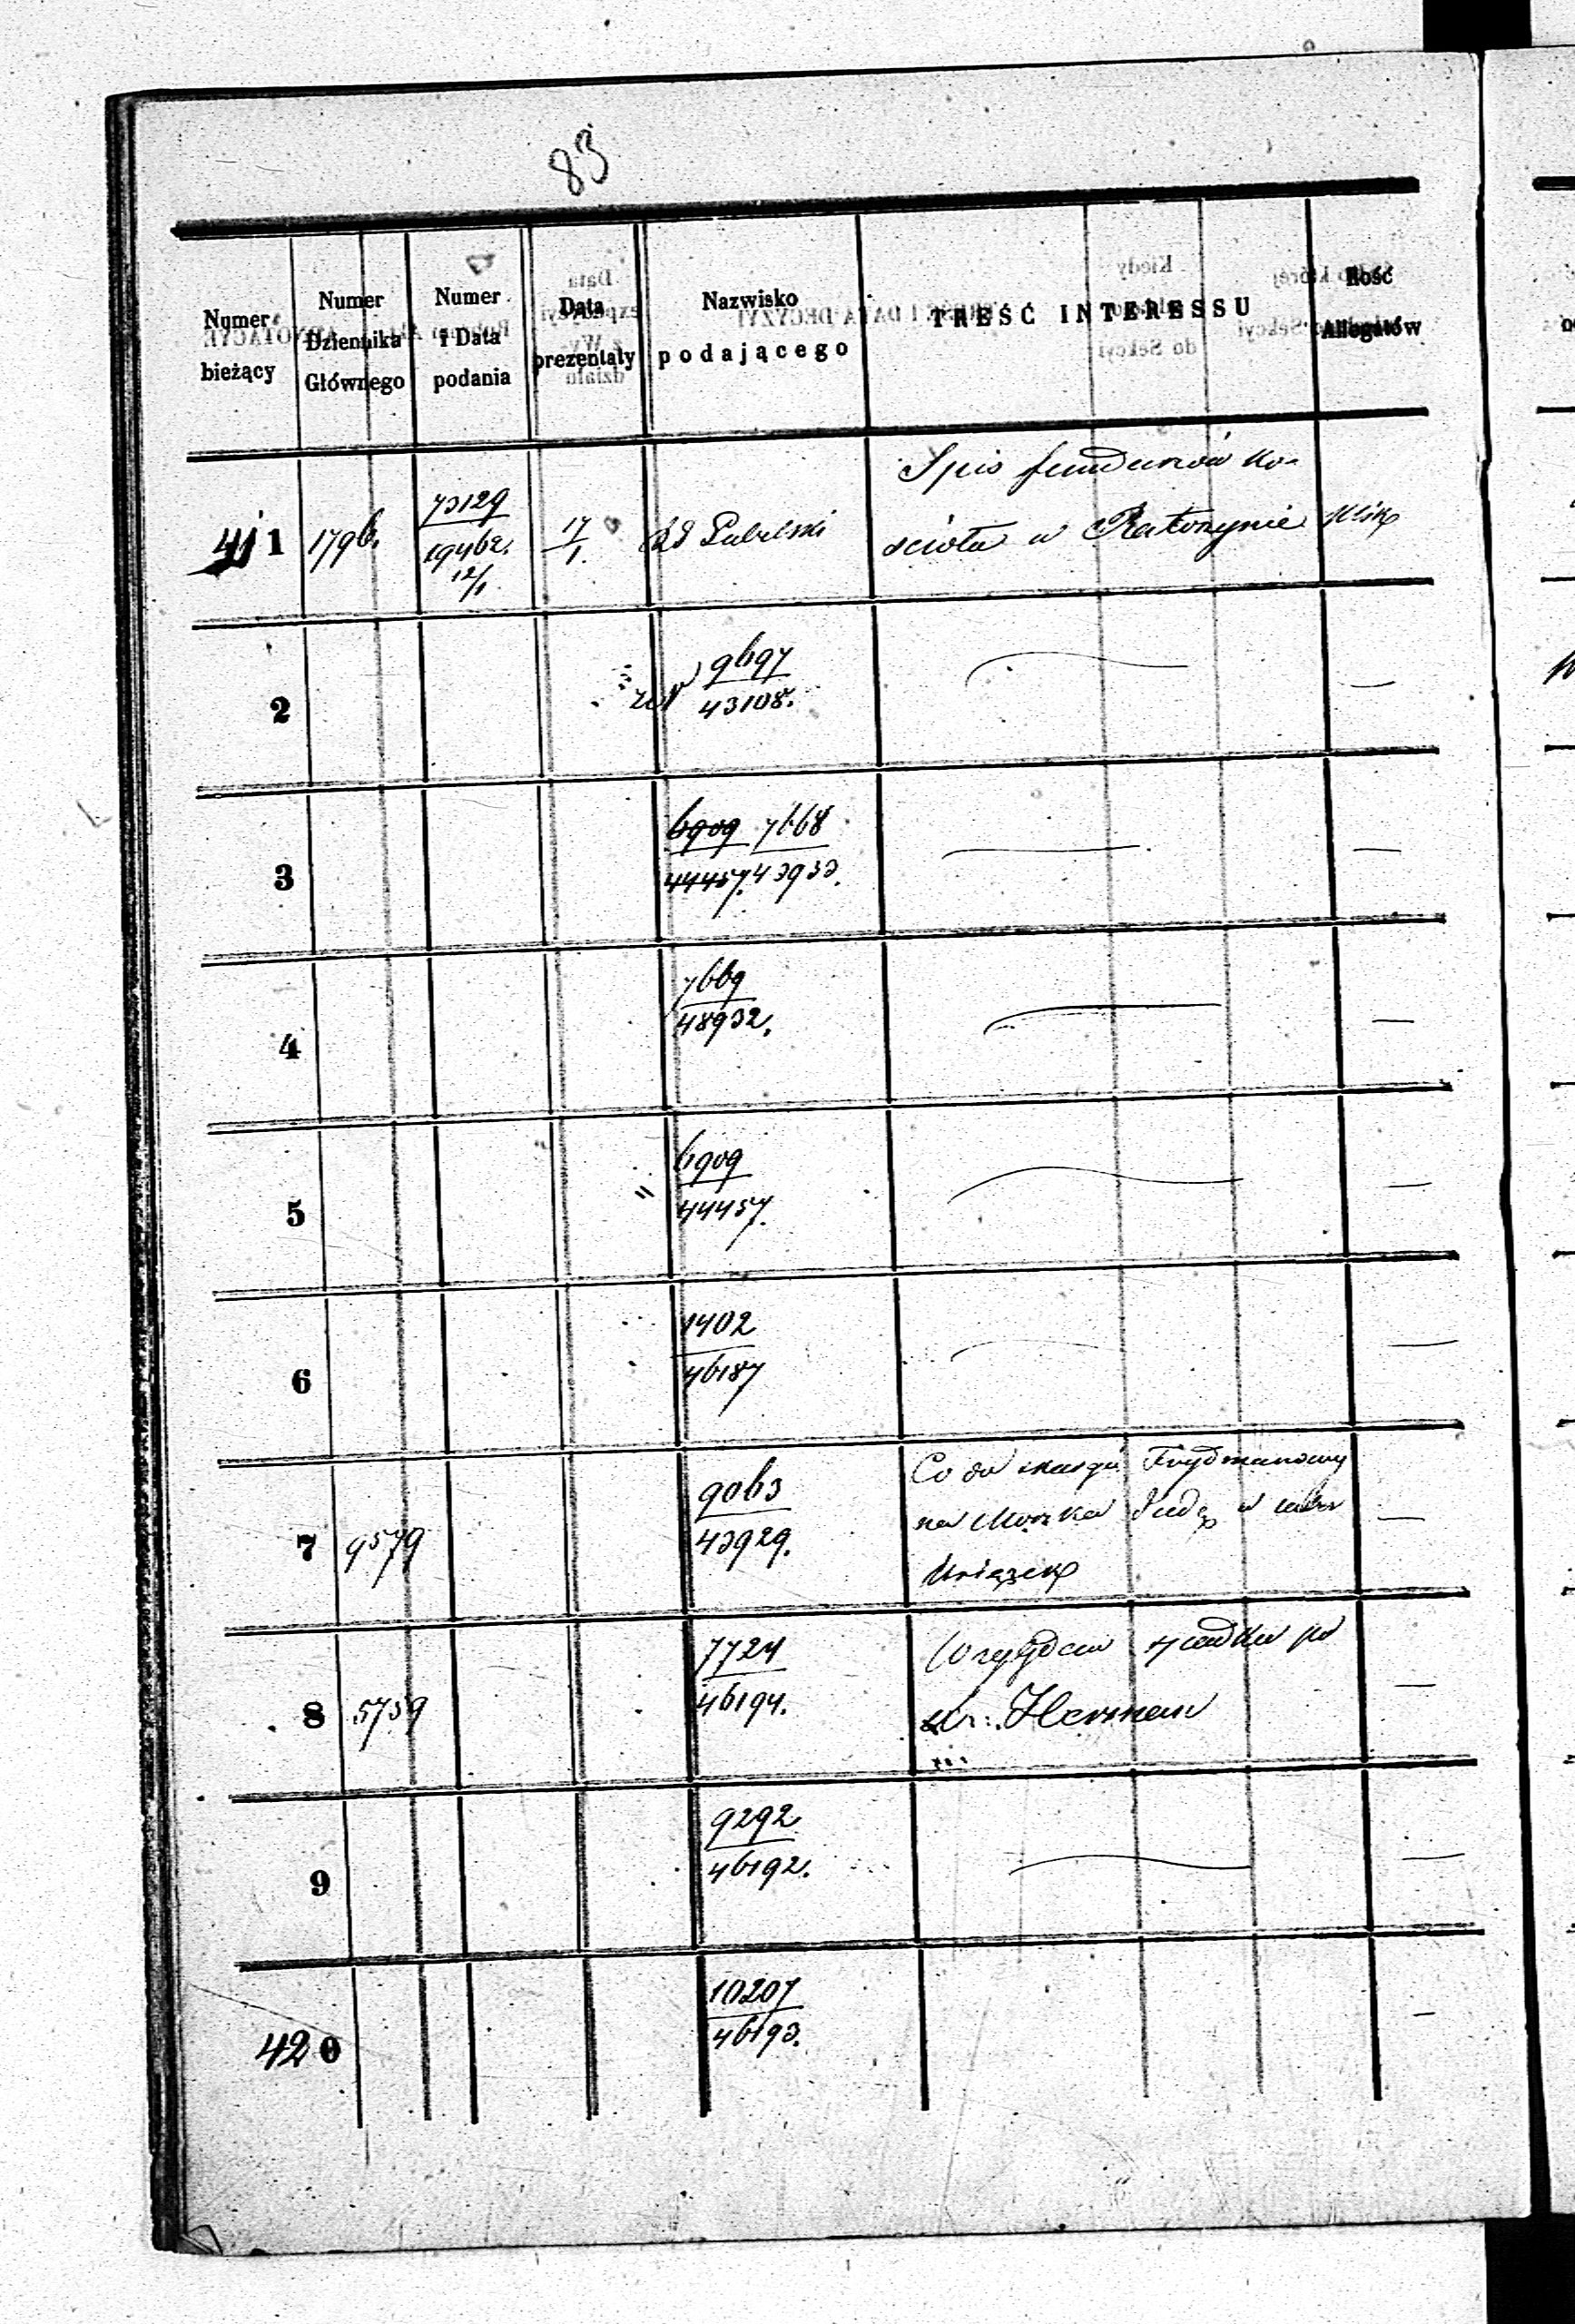 83
Numer bieżący
Numer Dziennika Głównego
Numer i Data podania
Data prezentaty
Nazwisko podającego
TREŚĆ INTERESSU
Ilość Allegatów
41 1 1796. 73129 19462. 12/1 17/1. Rd Lubelski Spis funduszów ko-
ścioła w Ratoszynie
2 9697
43108.
3 6909 7668
44457. 43933.
4 7669
48932.
5 6909
44457.
6 1402
46187
7 9579 9063 Co do skargi Frydmanowy
43929. na Moszka
8 5739 7724
46194. Herman
9 9292
46192.
420 10207
46193.